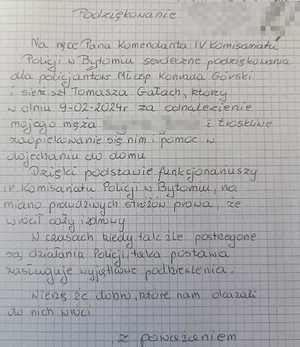 Podziękowanie
Na ręce Pana Komendanta IV Komisariatu
Policji w Bytomiu serdeczne podziękowania
dla policjantów Mł.asp Konrada Górski
i sierż.szt Tomasza Gałach, którzy
w dniu 9-02-2024r za odnalezienie
mojego męża i troskliwe
zaopiekowanie się nim i pomoc w
dojechaniu do domu
Dzięki podstawie funkcjonariuszy
IV Komisariatu Policji w Bytomiu, na
miano prawdziwych stróżów prawa, że
wrócił cały i zdrowy
W czasach kiedy tak źle postrzegane
są działania Policji, taka postawa
zasługuje wyjątkowe podkreślenia.
Wierzę że dobro, które nam okazali
do nich wróci
z poważaniem